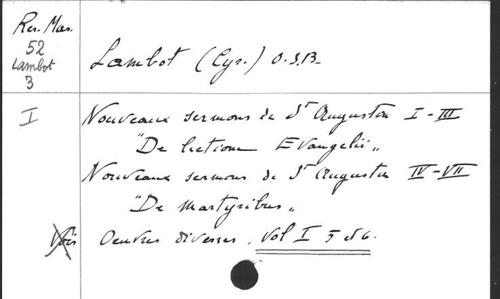 Res. Mar.
52
Lambot
3
Lambot (Cyr.) O.S.B.
I
Nouveaux sermons de St Augustin I-III
"De lectione Evangelii"
Nouveaux sermons de St Augustin IV-VII
"De Martyribus"
Vois Oeuvres diverses. Vol I 5 et 6.